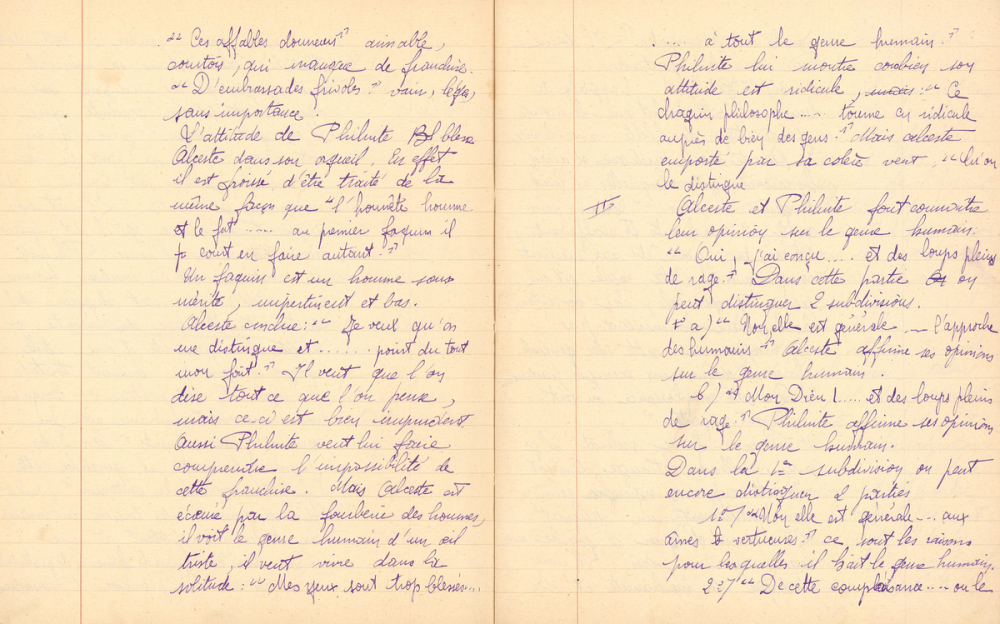 "Ces affables donneurs" aimable,
courtois, qui manque de franchise.
"D'embrassades frivoles" vain, léger,
sans importance.
L'attitude de Philinte blesse
Alceste dans son orgueil. En effet
il est froissé d'être traité de la
même façon que "l'honnête homme
et le fat ..... au premier faquin il
court en faire autant."
Un faquin est un homme sans
mérite, impertinent et bas.
Alceste conclue : "Je veux qu'on
me distingue et ...... point du tout
mon fait." Il veut que l'on
dise tout ce que l'on pense,
mais ceci est bien imprudent
Aussi Philinte veut lui faire
comprendre l'impossibilité de
cette franchise. Mais Alceste est
écœuré par la fourberie des hommes,
il voit le genre humain d'un œil
triste, il veut vivre dans la
solitude : "Mes yeux sont trop blessés....
..... à tout le genre humain."
Philinte lui montre combien son
attitude est ridicule, : "Ce
chagrin philosophe .... tourne en ridicule
auprès de bien des gens." Mais Alceste
emporté par sa colère veut, "Qu'on
le distingue
IV Alceste et Philinte font connaître
leur opinion sur le genre humain.
"Oui, j'ai conçu ..... et des loups pleins
de rage." Dans cette partie on
peut distinguer 2 subdivisions.
a) "Non, elle est générale .... l'approche
des humains." Alceste affirme ses opinions
sur le genre humain.
b) "Mon Dieu ! ..... et des loups pleins
de rage." Philinte affirme ses opinions
sur le genre humain.
Dans la 1ère subdivision on peut
encore distinguer 2 parties
1°/ "Non elle est générale .... aux
âmes vertueuses." ce sont les raisons
pour lesquelles il hait le genre humain.
2°/ "De cette complaisance .... ou le